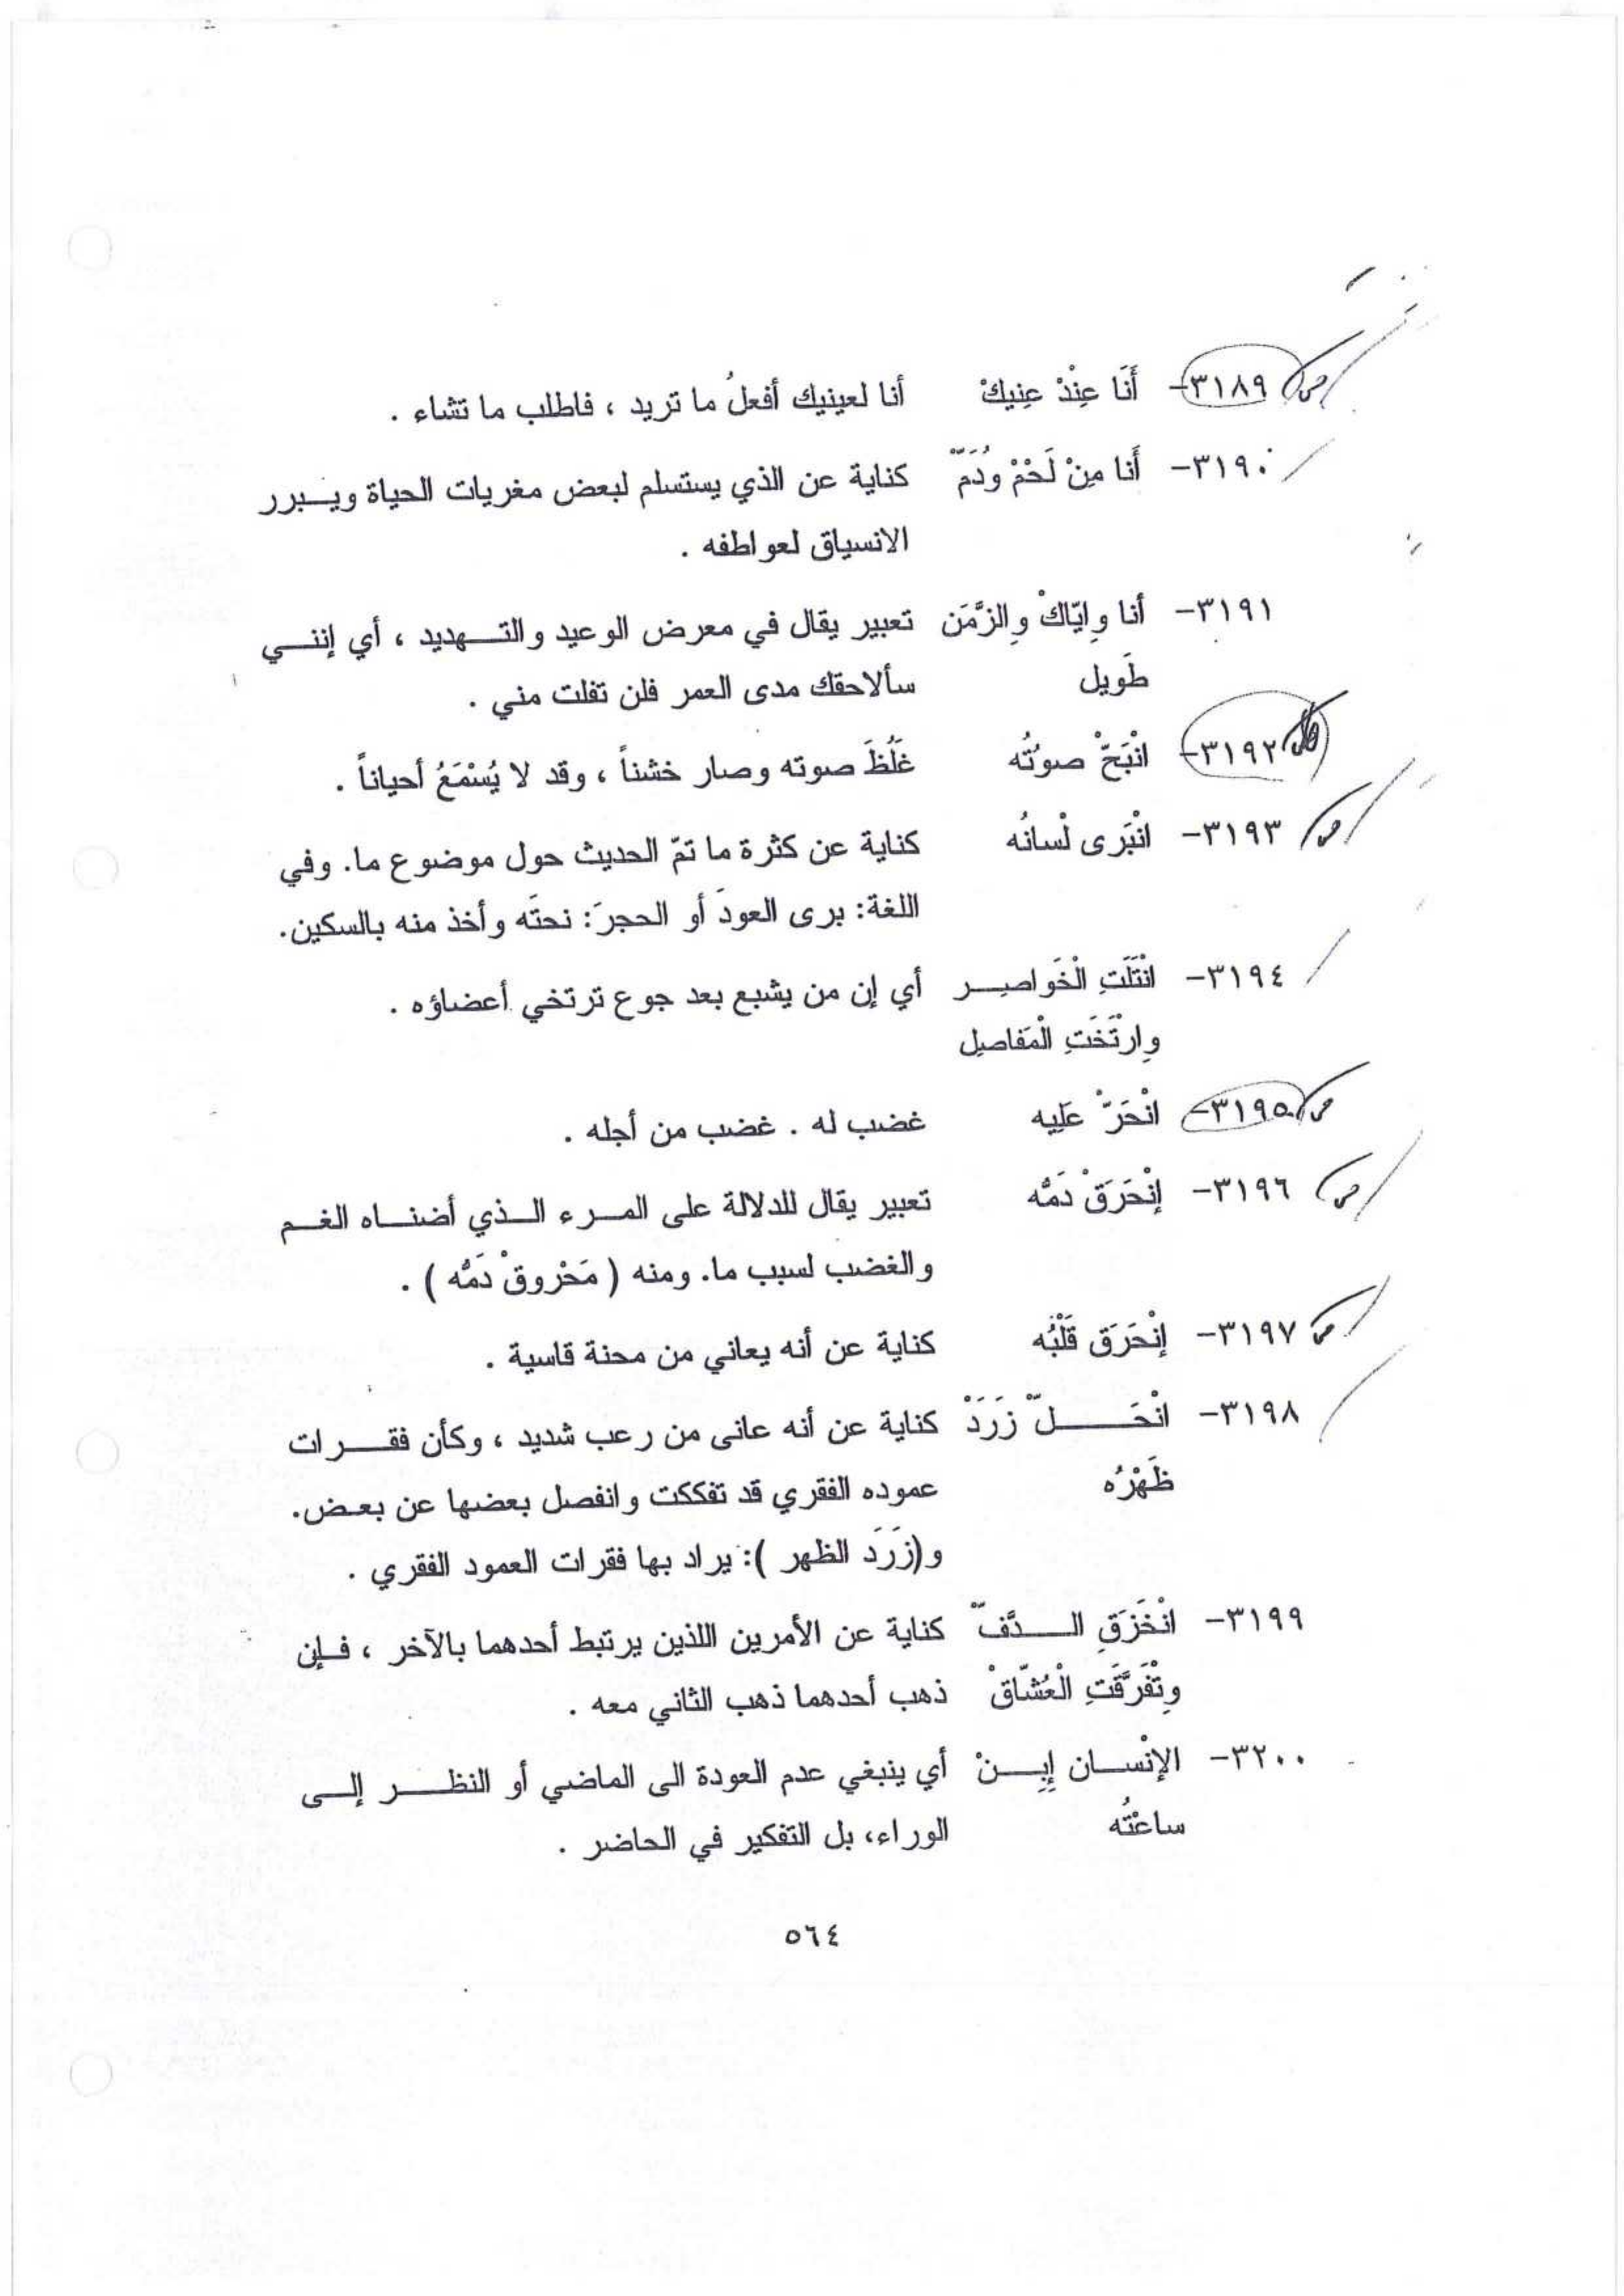 ٣١٨٩- أَنَا عِنْدْ عِنِيكْ أنا لعينيك أفعلُ ما تريد ، فاطلب ما تشاء .
٣١٩٠- أَنا مِنْ لَحْمْ ودَمّ كناية عن الذي يستسلم لبعض مغريات الحياة ويبرر
الانسياق لعواطفه .
٣١٩١- أنا وِايّاكْ والزَّمَن تعبير يقال في معرض الوعيد والتهديد ، أي إنني
طَويل سألاحقك مدى العمر فلن تفلت مني .
٣١٩٢- انْبَحّْ صوتُه غَلُظَ صوته وصار خشناً ، وقد لا يُسْمَعُ أحياناً .
٣١٩٣- انْبَرى لْسانُه كناية عن كثرة ما تمّ الحديث حول موضوع ما. وفي
اللغة: برى العودَ أو الحجرَ: نحتَه وأخذ منه بالسكين.
٣١٩٤- انْتَلَتِ الْخَواصِر أي إن من يشبع بعد جوع ترتخي أعضاؤه .
وِارْتَخَتِ الْمَفاصِل
٣١٩٥- انْحَرّْ عَلَيه غضب له . غضب من أجله .
٣١٩٦- إنْحَرَقْ دَمُّه تعبير يقال للدلالة على المرء الذي أضناه الغم
والغضب لسبب ما. ومنه ( مَحْروقْ دَمُّه ) .
٣١٩٧- إنْحَرَق قَلْبُه كناية عن أنه يعاني من محنة قاسية .
٣١٩٨- انْحَلّْ زَرَدْ كناية عن أنه عانى من رعب شديد ، وكأن فقرات
ظَهْرُه عموده الفقري قد تفككت وانفصل بعضها عن بعض.
و(زَرَدَ الظهر ): يراد بها فقرات العمود الفقري .
٣١٩٩- انْخَزَقِ الدَّفّْ كناية عن الأمرين اللذين يرتبط أحدهما بالآخر ، فإن
وِتْفَرَّقَتِ الْعُشّاقْ ذهب أحدهما ذهب الثاني معه .
٣٢٠٠- الإنْسان إِبِنْ أي ينبغي عدم العودة الى الماضي أو النظر إلى
ساعْتُه الوراء، بل التفكير في الحاضر .
٥٦٤